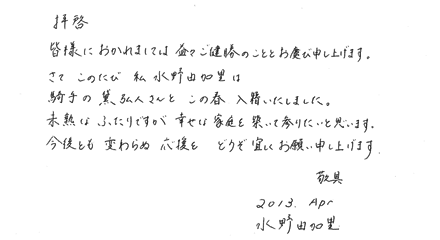 拝啓
皆様におかれましては益々ご健勝のこととお慶び申し上げます。
さて このたび 私 水野由加里は
騎手の 黛弘人さんと この春 入籍いたしました。
未熟な ふたりですが 幸せな家庭を 築いて参りたいと思います。
今後とも 変わらぬ 応援を どうぞ宜しくお願い申し上げます.
敬具
2013. Apr
水野由加里